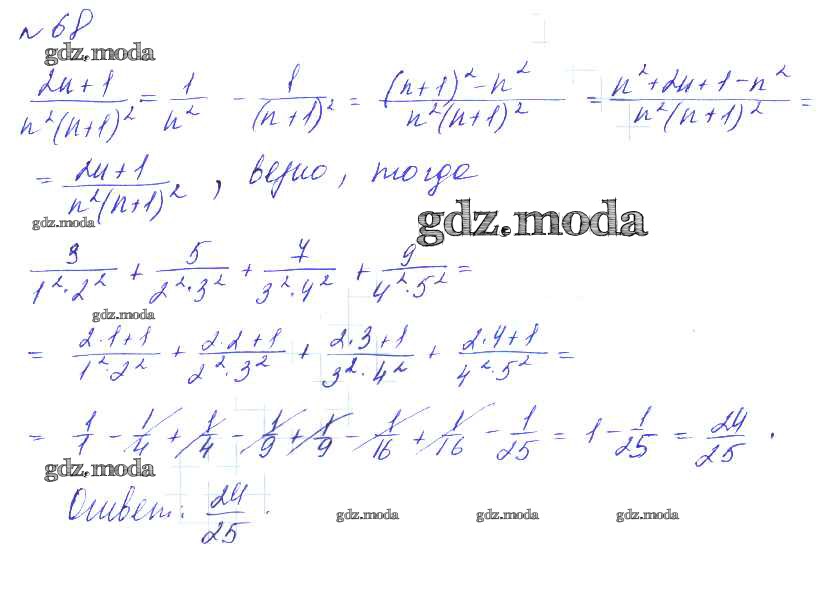 №68
gdz.moda
(2n+1)/(n²(n+1)²) = 1/n² - 1/(n+1)² = ((n+1)²-n²)/(n²(n+1)²) = (n²+2n+1-n²)/(n²(n+1)²) =
= (2n+1)/(n²(n+1)²), верно, тогда
gdz.moda
gdz.moda
3/(1²·2²) + 5/(2²·3²) + 7/(3²·4²) + 9/(4²·5²) =
gdz.moda
= (2·1+1)/(1²·2²) + (2·2+1)/(2²·3²) + (2·3+1)/(3²·4²) + (2·4+1)/(4²·5²) =
= 1/1 - 1/4 + 1/4 - 1/9 + 1/9 - 1/16 + 1/16 - 1/25 = 1 - 1/25 = 24/25.
gdz.moda
Ответ: 24/25.
gdz.moda gdz.moda gdz.moda